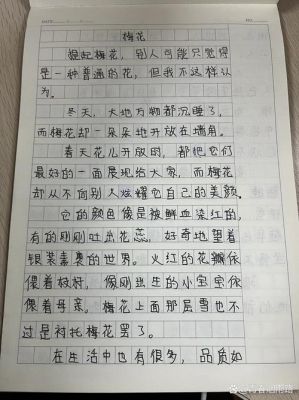 梅花
提起梅花，别人可能只觉得
是一种普通的花，但我不这样认
为。
冬天，大地万物都沉睡了，
而梅花却一朵朵地开放在墙角。
春天花儿开放时，都把它们
最好的一面展现给大家，而梅花
却从不向别人炫耀它自己的美颜。
它的颜色像是被鲜血染红的，
有的刚刚吐出花蕊，好奇地望着
银装素裹的世界。火红的花瓣依
偎着枝树，像刚出生的小宝宝依
偎着母亲。梅花上面那层雪也不
过是衬托梅花罢了。
在生活中也有很多，品质如